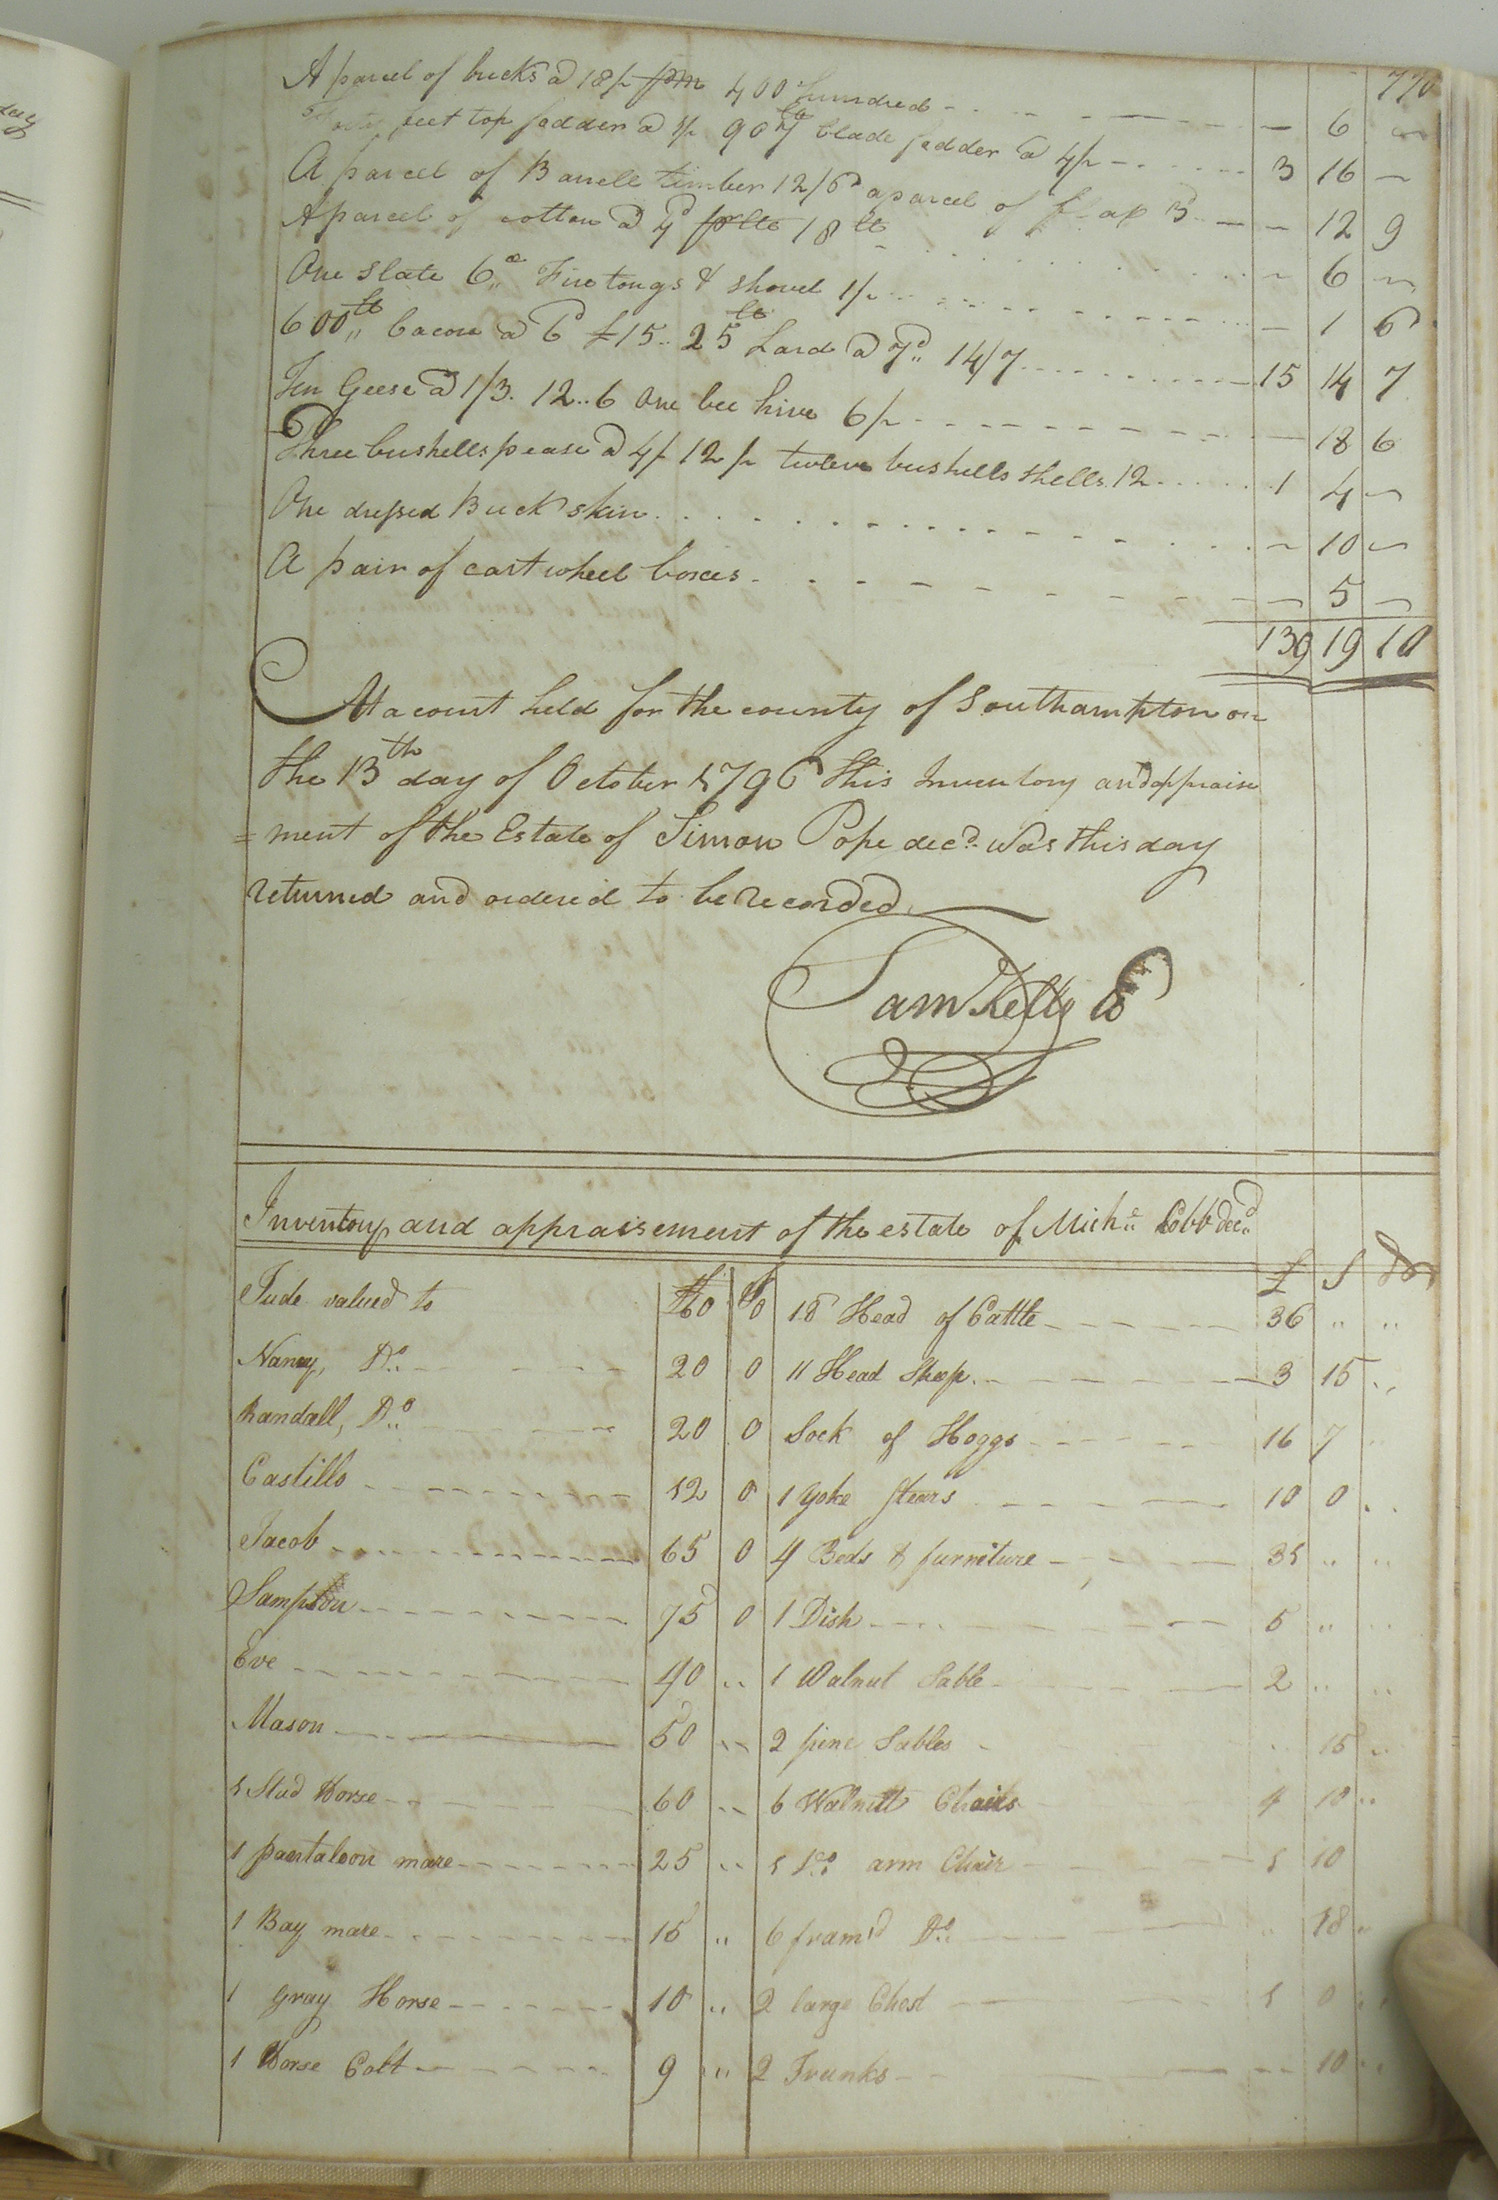 770
A parcel of bricks @ 18/ 400 hundred - 6 -
feet top fodder @ 1/ 90 blade fodder @ 4/ 3 16 -
A parcel of Barrell timber 12/6 a parcel of - 12 9
A parcel of cotton @ 4d 18 lb - 6 -
One slate 6d Fire tongs & shovel 1/ - 1 6
600lb bacon @ 6d £15.. 25lb Lard @ 7d 14/7 15 14 7
Ten Geese @ 1/3. 12..6 One bee hive 6/ - 18 6
Three bushells pease @ 4/ 12/ twelve bushells shells 12 1 4 -
One dressed Buck skin - 10 -
A pair of cart wheel boxes - 5 -
139 19 10
At a court held for the county of Southampton on
the 13th day of October 1796 this Inventory and appraise
=ment of the Estate of Simon Pope decd. was this day
returned and ordered to be recorded
Saml Kello
Inventory and appraisement of the estate of Michl Cobb decd
£ S D
Jude valued to 60 0 18 Head of Cattle 36 " "
Nancy, Do 20 0 11 Head Sheep 3 15 "
Randall, Do 20 0 Sock of Hoggs 16 7
Castillo 12 0 1 yoke Stears 10 0
Jacob 65 0 4 Beds & furniture 35 " "
Sampson 75 0 1 Dish 5 "
Eve 40 " 1 Walnut Table 2 " "
Mason 50 " 2 pine Tables 15 "
1 Stud Horse 60 " 6 Walnutt Chairs 4 10 "
1 pantaloon mare 25 " 1 Do arm Chair 1 10
1 Bay mare 15 " 6 fram'd Do " 18 "
1 Gray Horse 10 " 2 large Chest 1 0
1 Horse Colt 9 " 2 Trunks 10 "